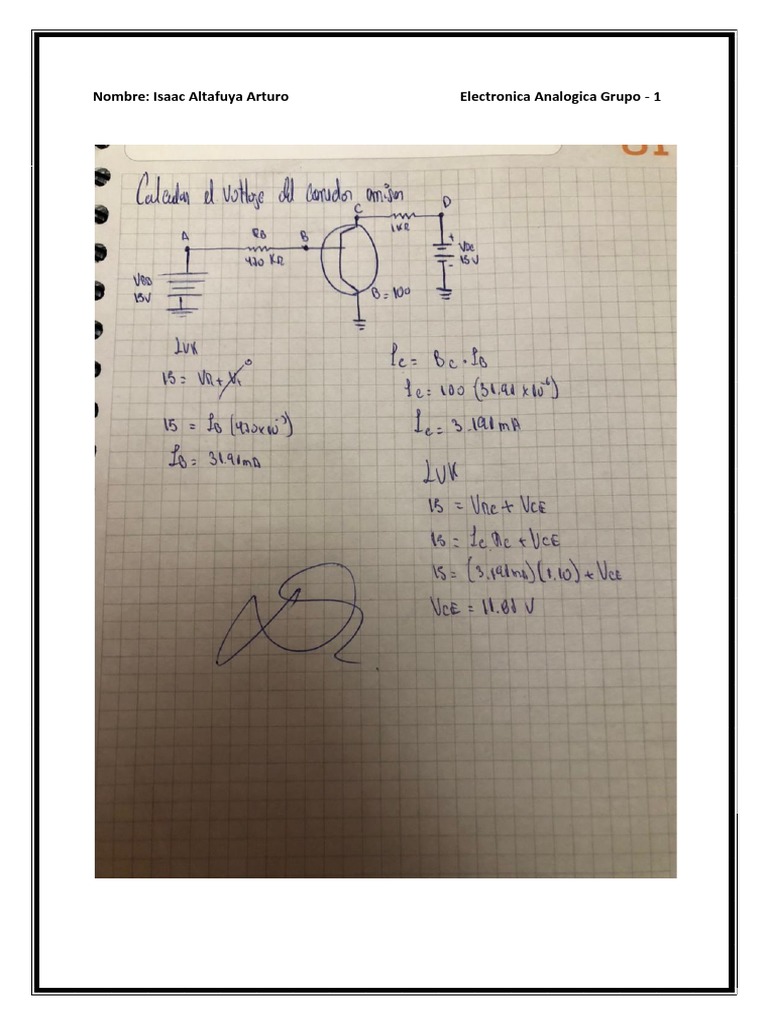 Nombre: Isaac Altafuya Arturo Electronica Analogica Grupo - 1
Calcular el voltaje del emisor
C
D
A
RB
B
1KΩ
470 KΩ
VBB
15V
VCC
15V
B = 100
LVK
15 = VR + V1 0
15 = IB (470x10⁻³)
IB = 31.91mA
IC = BC · IB
IC = 100 (31.91 x10⁻⁶)
IC = 3.191mA
LVK
15 = VRC + VCE
15 = IC RC + VCE
15 = (3.191mA)(1.10) + VCE
VCE = 11.81 V